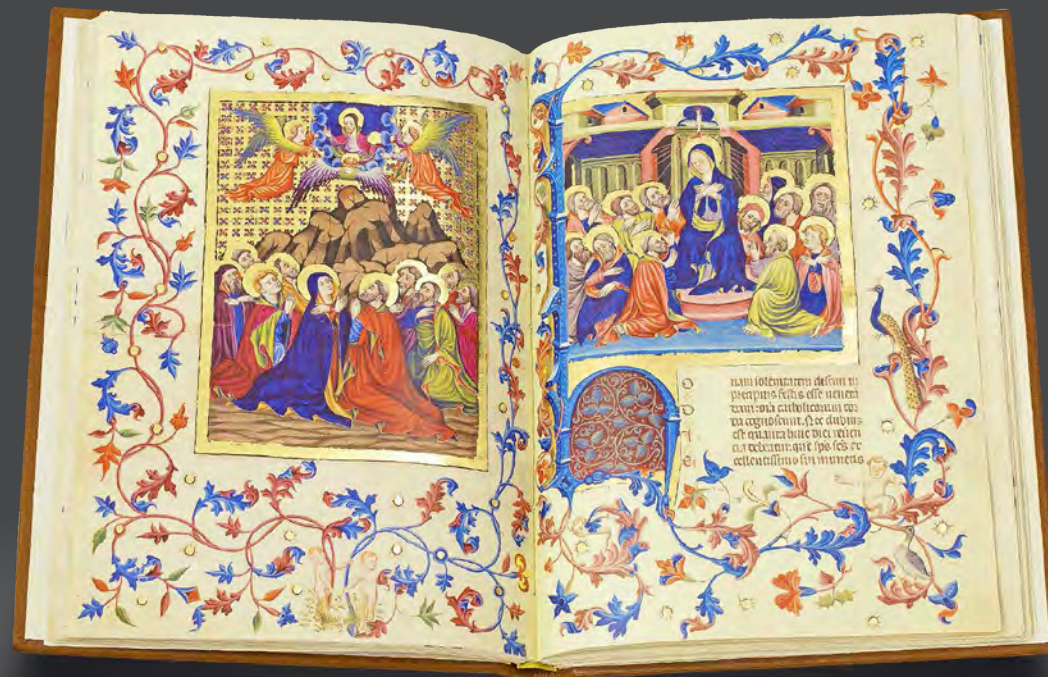 O nam solenitatem in
precipuis festis esse uenera
D dam: oia catholicorum cor
da cognoscunt. Nec dubium
est quanta huic diei reueren
cia debeatur. que sps scs ex
E cellentissimo sui muneris